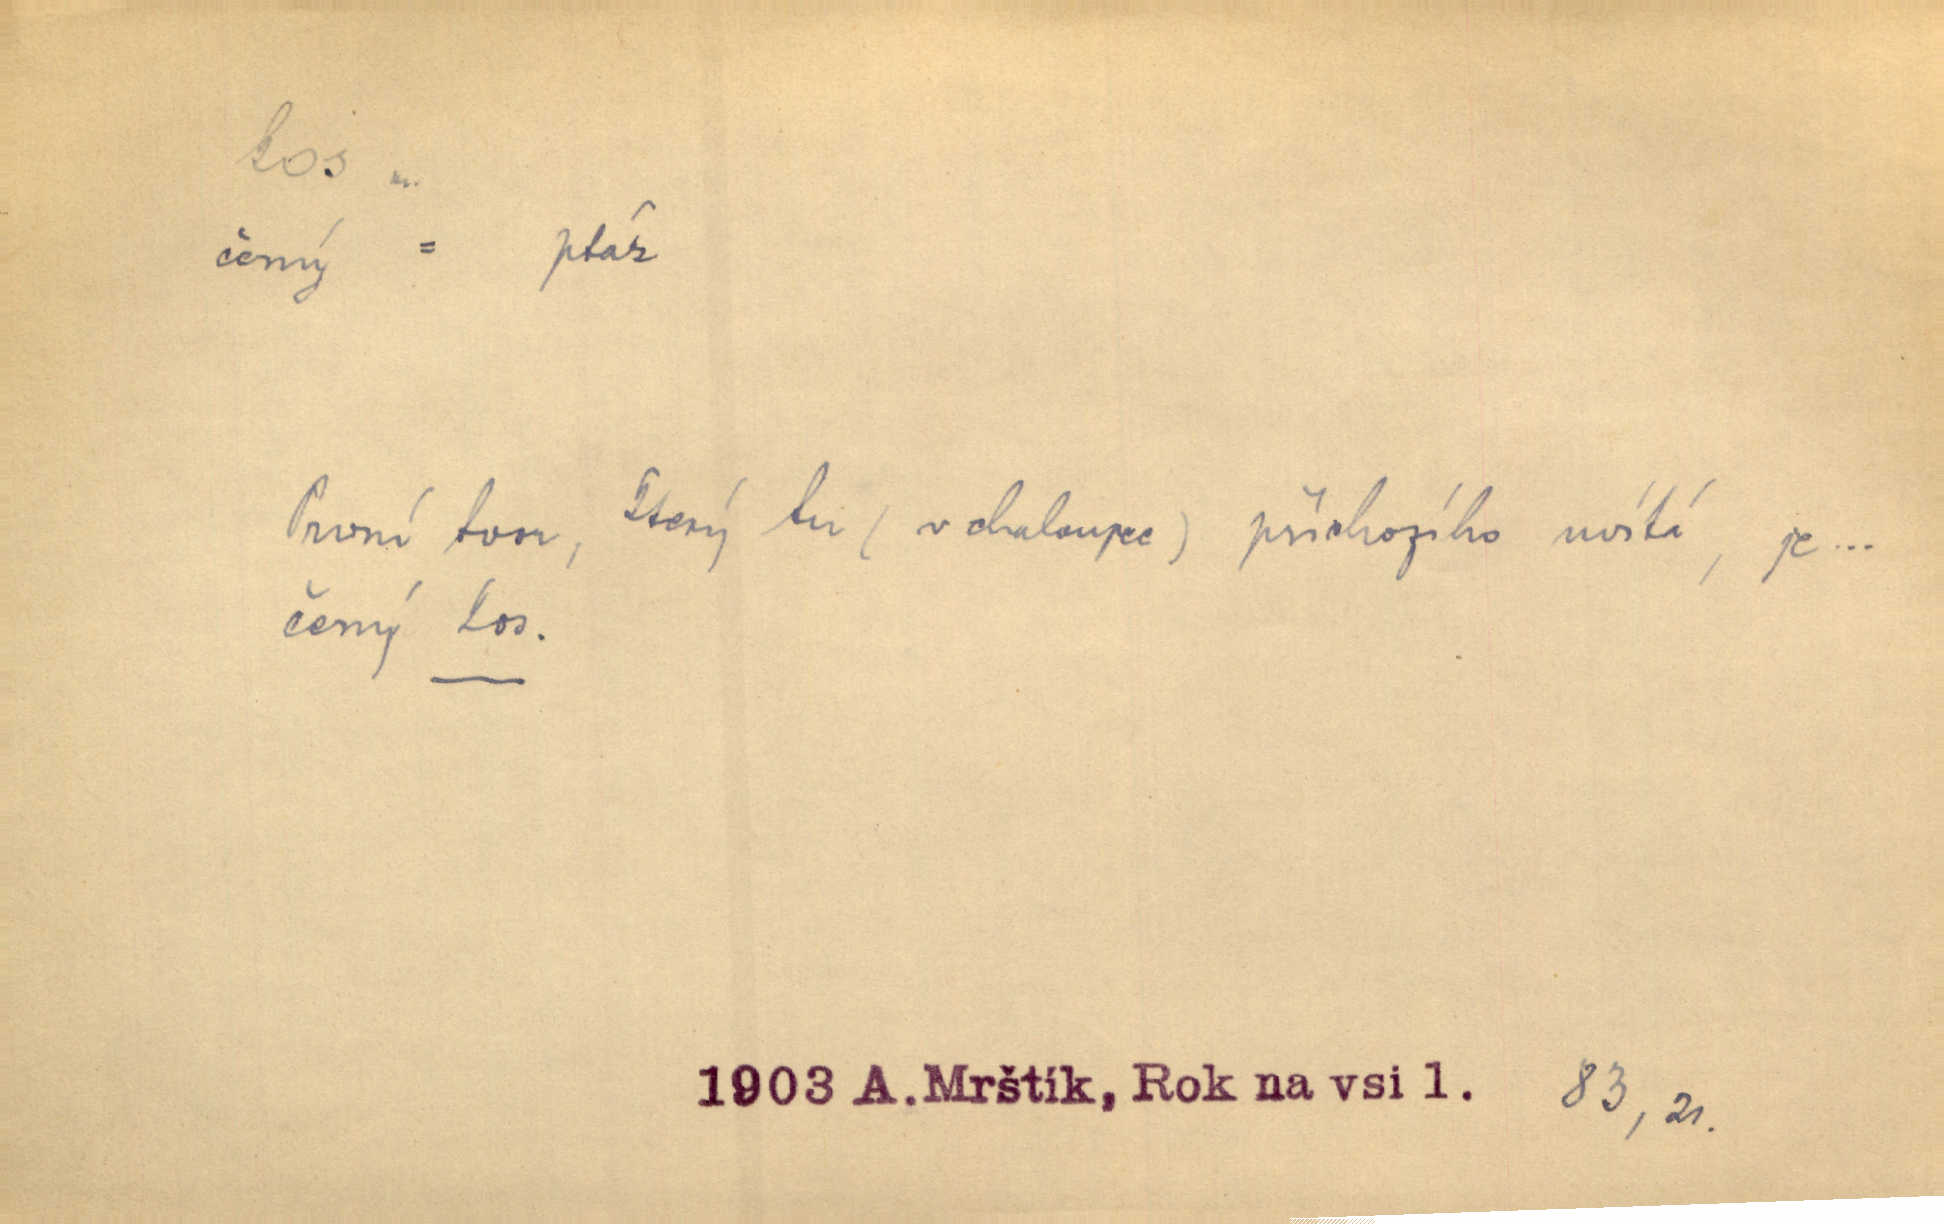 kos m.
černý = pták
První tvor, který tu (v chaloupce) příchozího uvítá, je...
černý kos.
1903 A.Mrštík, Rok na vsi 1. 83, 21.